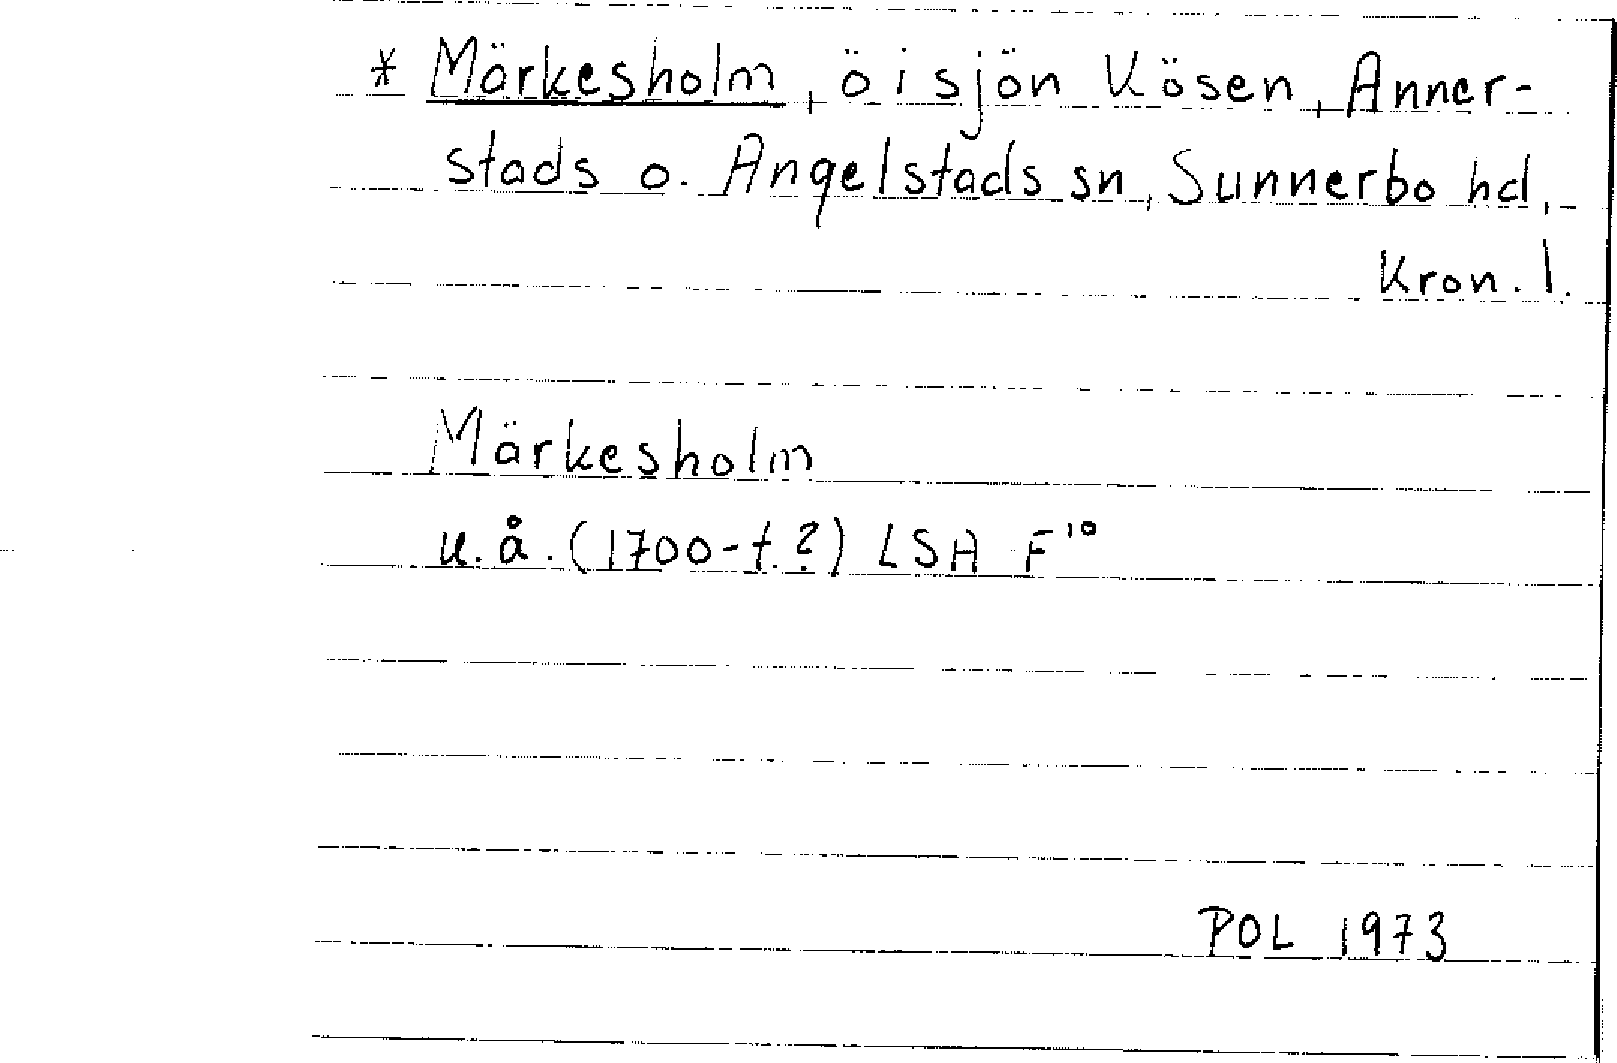 * Märkesholm, ö i sjön Kösen, Anner-
stads o. Angelstads sn, Sunnerbo hd,
Kron. l.
Märkesholm
u.å. (1700-t.?) LSA F¹⁰
POL 1973